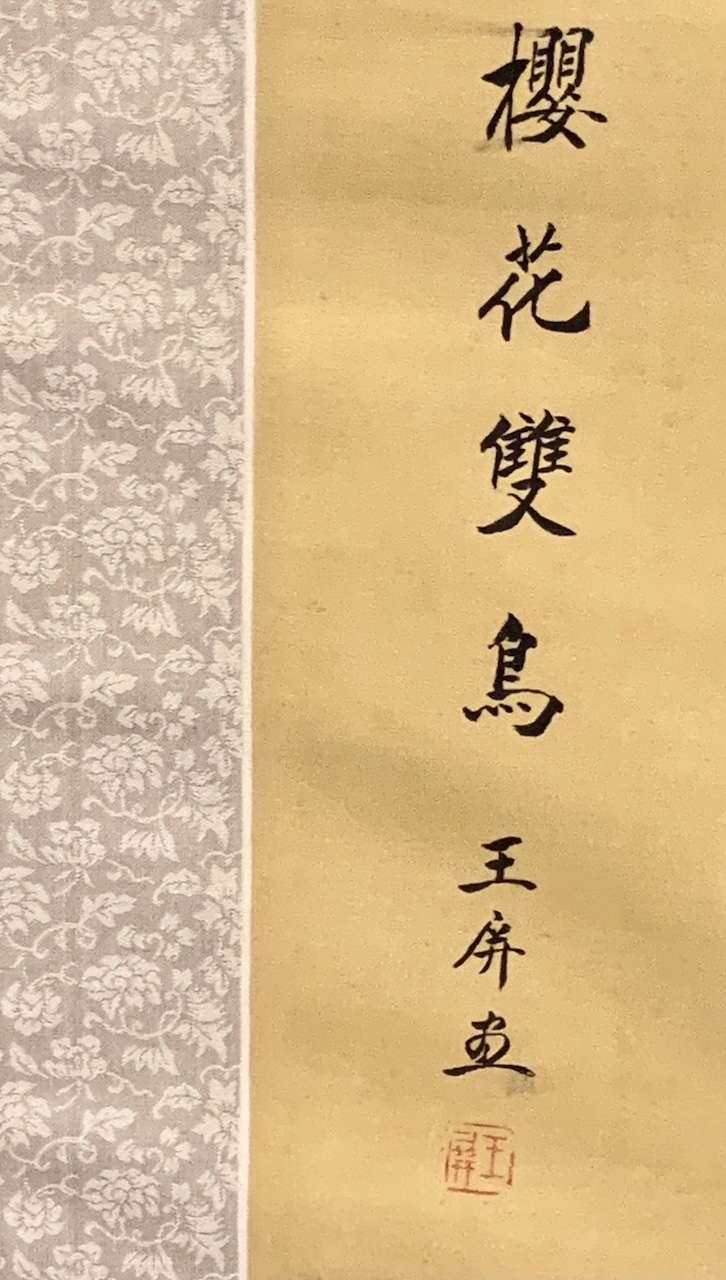 櫻花雙鳥
王屏画
王屏